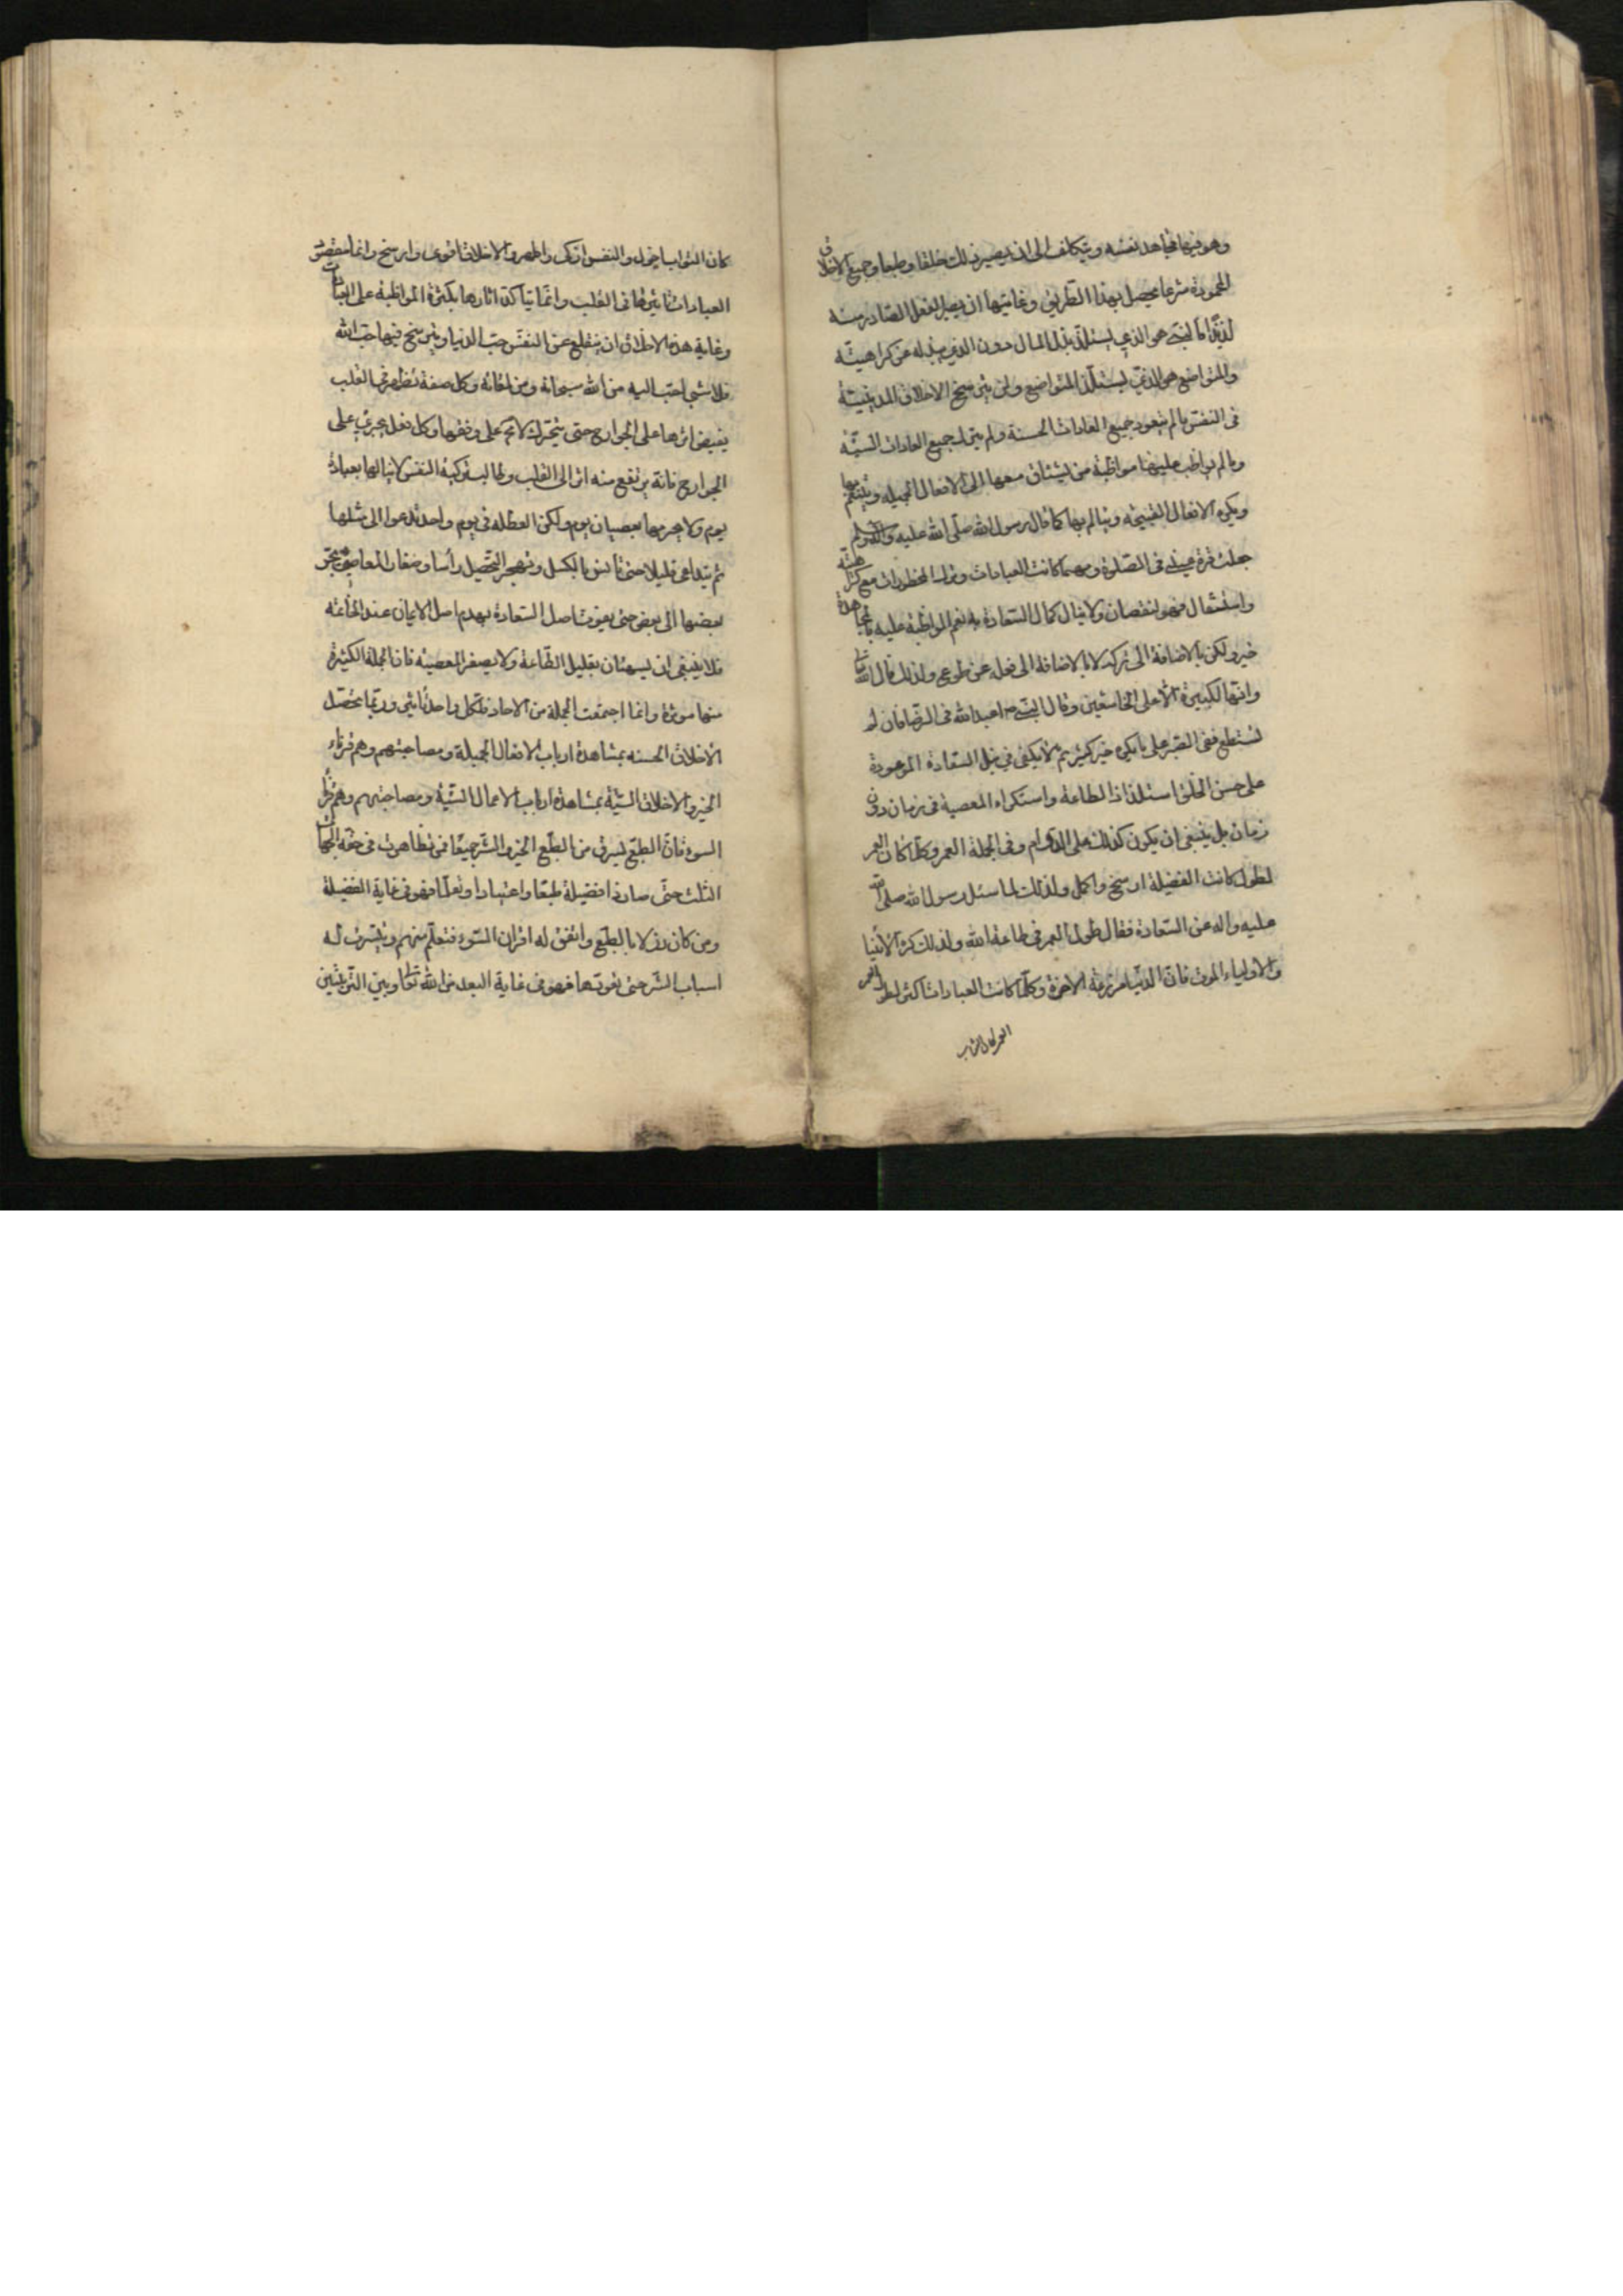 وهو فيها مجاهد نفسه ويتكلف الى ان يصير ذلك خلقا وطبعا وجميع الاخلاق
المحمودة شرعا يحصل بهذا الطريق وغايتها ان يصير الفعل الصادر منه
لذيذا فالسخى هو الذى يستلذ بذل المال دون الذى يبذله عن كراهيته
والمتواضع هو الذى يستلذ المتواضع ولن يترسخ الاخلاق الدينية
فى النفس ما لم يتعود جميع العادات الحسنة ولم يترك جميع العادات السيئة
وما لم يواظب عليها مواظبة من يشتاق معها الى الافعال الجميلة ويتنعم بها
ويكره الافعال القبيحة ويتالم بها كما قال رسول الله صلى الله عليه واله وسلم
جعلت قرة عينى فى الصلوة ومهما كانت العبادات وترك المحظورات مع كراهته
واستثقال فهو لنقصان ولا ينال كمال السعادة به نعم المواظبة عليه بالمجاهدة
خير ولكن بالاضافة الى تركه لا بالاضافة الى فعله عن طوع ولذلك قال الله تعالى
وانها لكبيرة الا على الخاشعين وقال النبى ص اعبد الله فى الرضا فان لم
تستطع ففى الصبر على ما يكره خير كثير ثم لا يكفى فى نيل السعادة الموعودة
على حسن الخلق استلذاذ الطاعة واستكراه المعصية فى زمان دون
زمان بل ينبغى ان يكون كذلك على الدوام وفى الجملة العمر وكلما كان العمر
لطول كانت الفضيلة ارسخ واكمل ولذلك لما سئل رسول الله صلى الله
عليه واله عن السعادة فقال طول العمر فى طاعة الله ولذلك كره الانبيا
والاولياء الموت فان الدنيا مزرعة الاخرة وكلما كانت العبادات اكثر لطول العمر
العمر كان الثواب
كان الثواب اجزل والنفس ازكى واطهر والاخلاق اقوى وارسخ وانما مقصود
العبادات تاثيرها فى القلب وانما يتاكد اثارها بكثرة المواظبة على العبادات
وغاية هذه الاخلاق ان ينقلع عن النفس حب الدنيا ويترسخ فيها حب الله
فلا شىء احب اليه من الله سبحانه ومن لقائه وكل صفة تظهر فى القلب
يفيض اثرها على الجوارح حتى يتحرك لا محة على وفقها وكل فعل يجرى على
الجوارح فانه يرتفع منه اثر الى القلب وطالب تزكية النفس لا ينالها بعبادة
يوم ولا يحرمها بعصيان يوم ولكن العطلة فى يوم واحد تدعوا الى مثلها
ثم يتداعى قليلا حتى تانس بالكسل وتهجر التحصيل راسا وصغار المعاصى يجر
بعضها الى بعض حتى يفوت اصل السعادة بهدم اصل الايمان عند الخاتمة
فلا ينبغى ان يستهان بقليل الطاعة ولا يصغر المعصية فان الجملة الكثيرة
منها موثرة وانما اجتمعت الجملة من الاحاد فلكل واحد تاثير وربما تحصل
الاخلاق الحسنة بمشاهدة ارباب الافعال الجميلة ومصاحبتهم وهم قرناء
الخير والاخلاق السيئة بمشاهدة ارباب الاعمال السيئة ومصاحبتهم وهم قرناء
السوء فان الطبع يسرق من الطبع الخير والشر جميعا فمن تظاهرت فى حقه الجهات
الثلث حتى صار ذا فضيلة طبعا واعتيادا وتعلما فهو فى غاية الفضيلة
ومن كان رذلا بالطبع واتفق له اقران السوء فتعلم منهم وتيسرت له
اسباب الشر حتى تعودها فهو فى غاية البعد من الله تعالى وبين الرتبتين